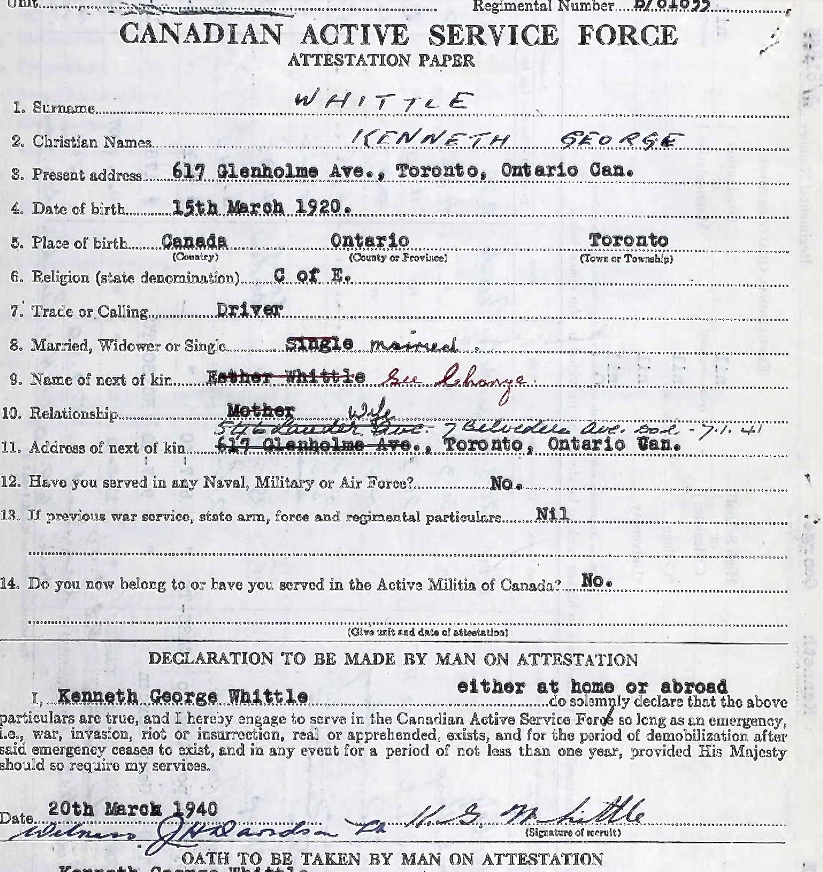 Unit Regimental Number B/81655
CANADIAN ACTIVE SERVICE FORCE
ATTESTATION PAPER
1. Surname WHITTLE
2. Christian Names KENNETH GEORGE
3. Present address 617 Glenholme Ave., Toronto, Ontario Can.
4. Date of birth 15th March 1920.
5. Place of birth Canada Ontario Toronto
(Country) (County or Province) (Town or Township)
6. Religion (state denomination) C of E.
7. Trade or Calling Driver
8. Married, Widower or Single Single married.
9. Name of next of kin Esther Whittle See Change.
10. Relationship Mother Wife
546 Lauder Ave. 7 Belvedere Ave. - 7.1.41
11. Address of next of kin 617 Glenholme Ave., Toronto, Ontario Can.
12. Have you served in any Naval, Military or Air Force? No.
13. If previous war service, state arm, force and regimental particulars Nil
14. Do you now belong to or have you served in the Active Militia of Canada? No.
(Give unit and date of attestation)
DECLARATION TO BE MADE BY MAN ON ATTESTATION
either at home or abroad
I, Kenneth George Whittle do solemnly declare that the above
particulars are true, and I hereby engage to serve in the Canadian Active Service Force so long as an emergency,
i.e., war, invasion, riot or insurrection, real or apprehended, exists, and for the period of demobilization after
said emergency ceases to exist, and in any event for a period of not less than one year, provided His Majesty
should so require my services.
Date 20th March 1940 K. G. Whittle
Witness J H Davidson (Signature of recruit)
OATH TO BE TAKEN BY MAN ON ATTESTATION
Kenneth George Whittle